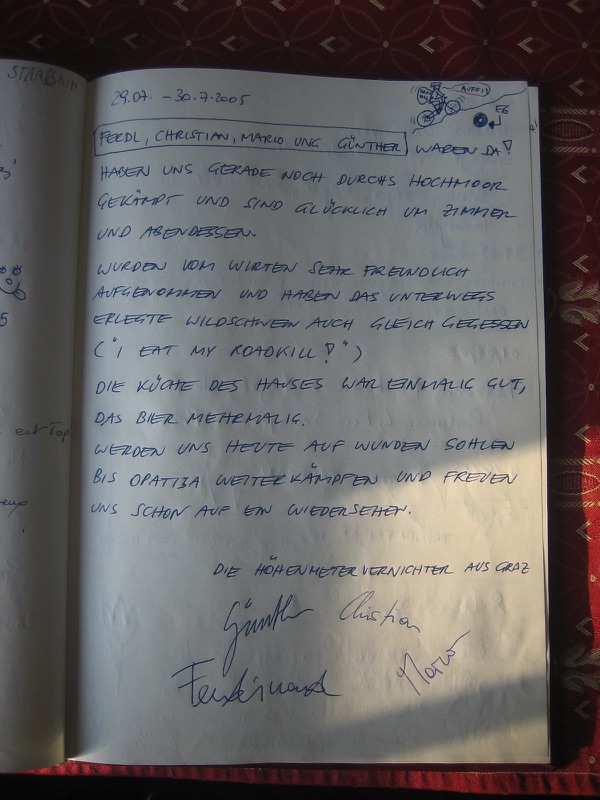 STARĘSINA
29.07. - 30.7.2005
AUFFI!
E6
FERDL, CHRISTIAN, MARIO UNG GÜNTHER WAREN DA!
HABEN UNS GERADE NOCH DURCHS HOCHMOOR
GEKÄMPT UND SIND GLÜCKLICH UM ZIMMER
UND ABENDESSEN.
WURDEN VOM WIRTEN SEHR FREUNDLICH
AUFGENOMMEN UND HABEN DAS UNTERWEGS
ERLEGTE WILDSCHWEIN AUCH GLEICH GEGESSEN
("I EAT MY ROADKILL!")
DIE KÜCHE DES HAUSES WAR EINMALIG GUT,
DAS BIER MEHRMALIG.
WERDEN UNS HEUTE AUF WUNDEN SOHLEN
BIS OPATIJA WEITERKÄMPFEN UND FREUEN
UNS SCHON AUF EIN WIEDERSEHEN.
DIE HÖHENMETERVERNICHTER AUS GRAZ
Günther Christian
Ferdinand Mario